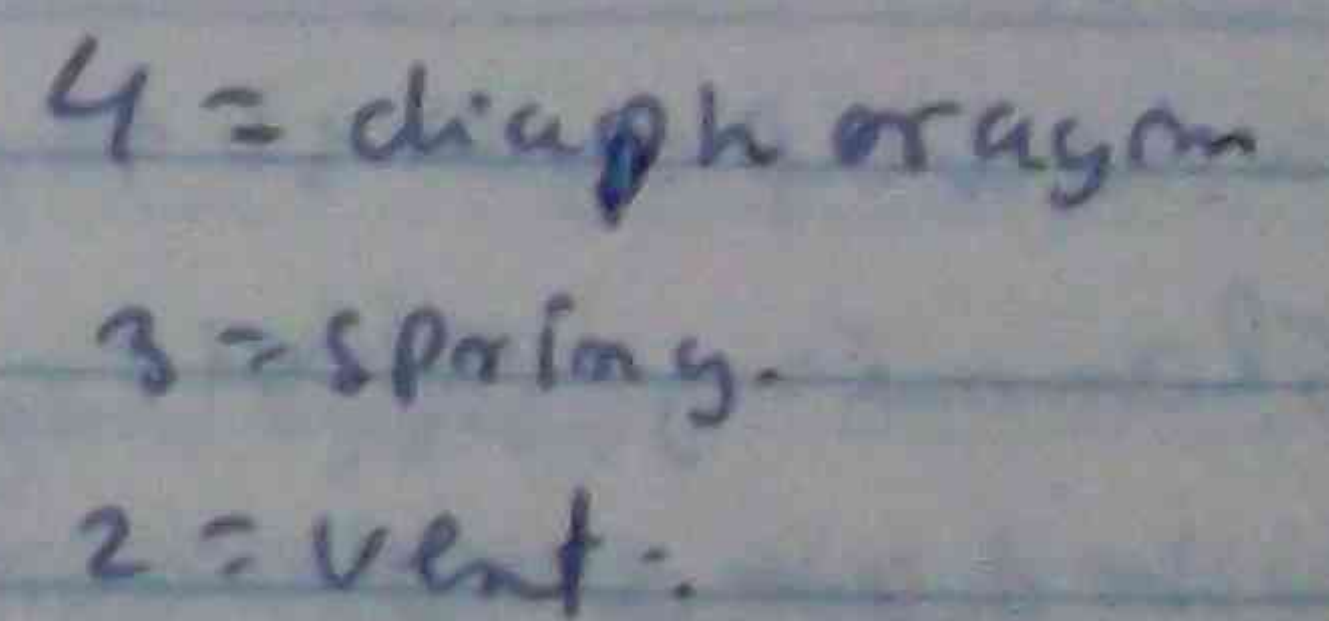 4 = diaphragm
3 = spring.
2 = vent.